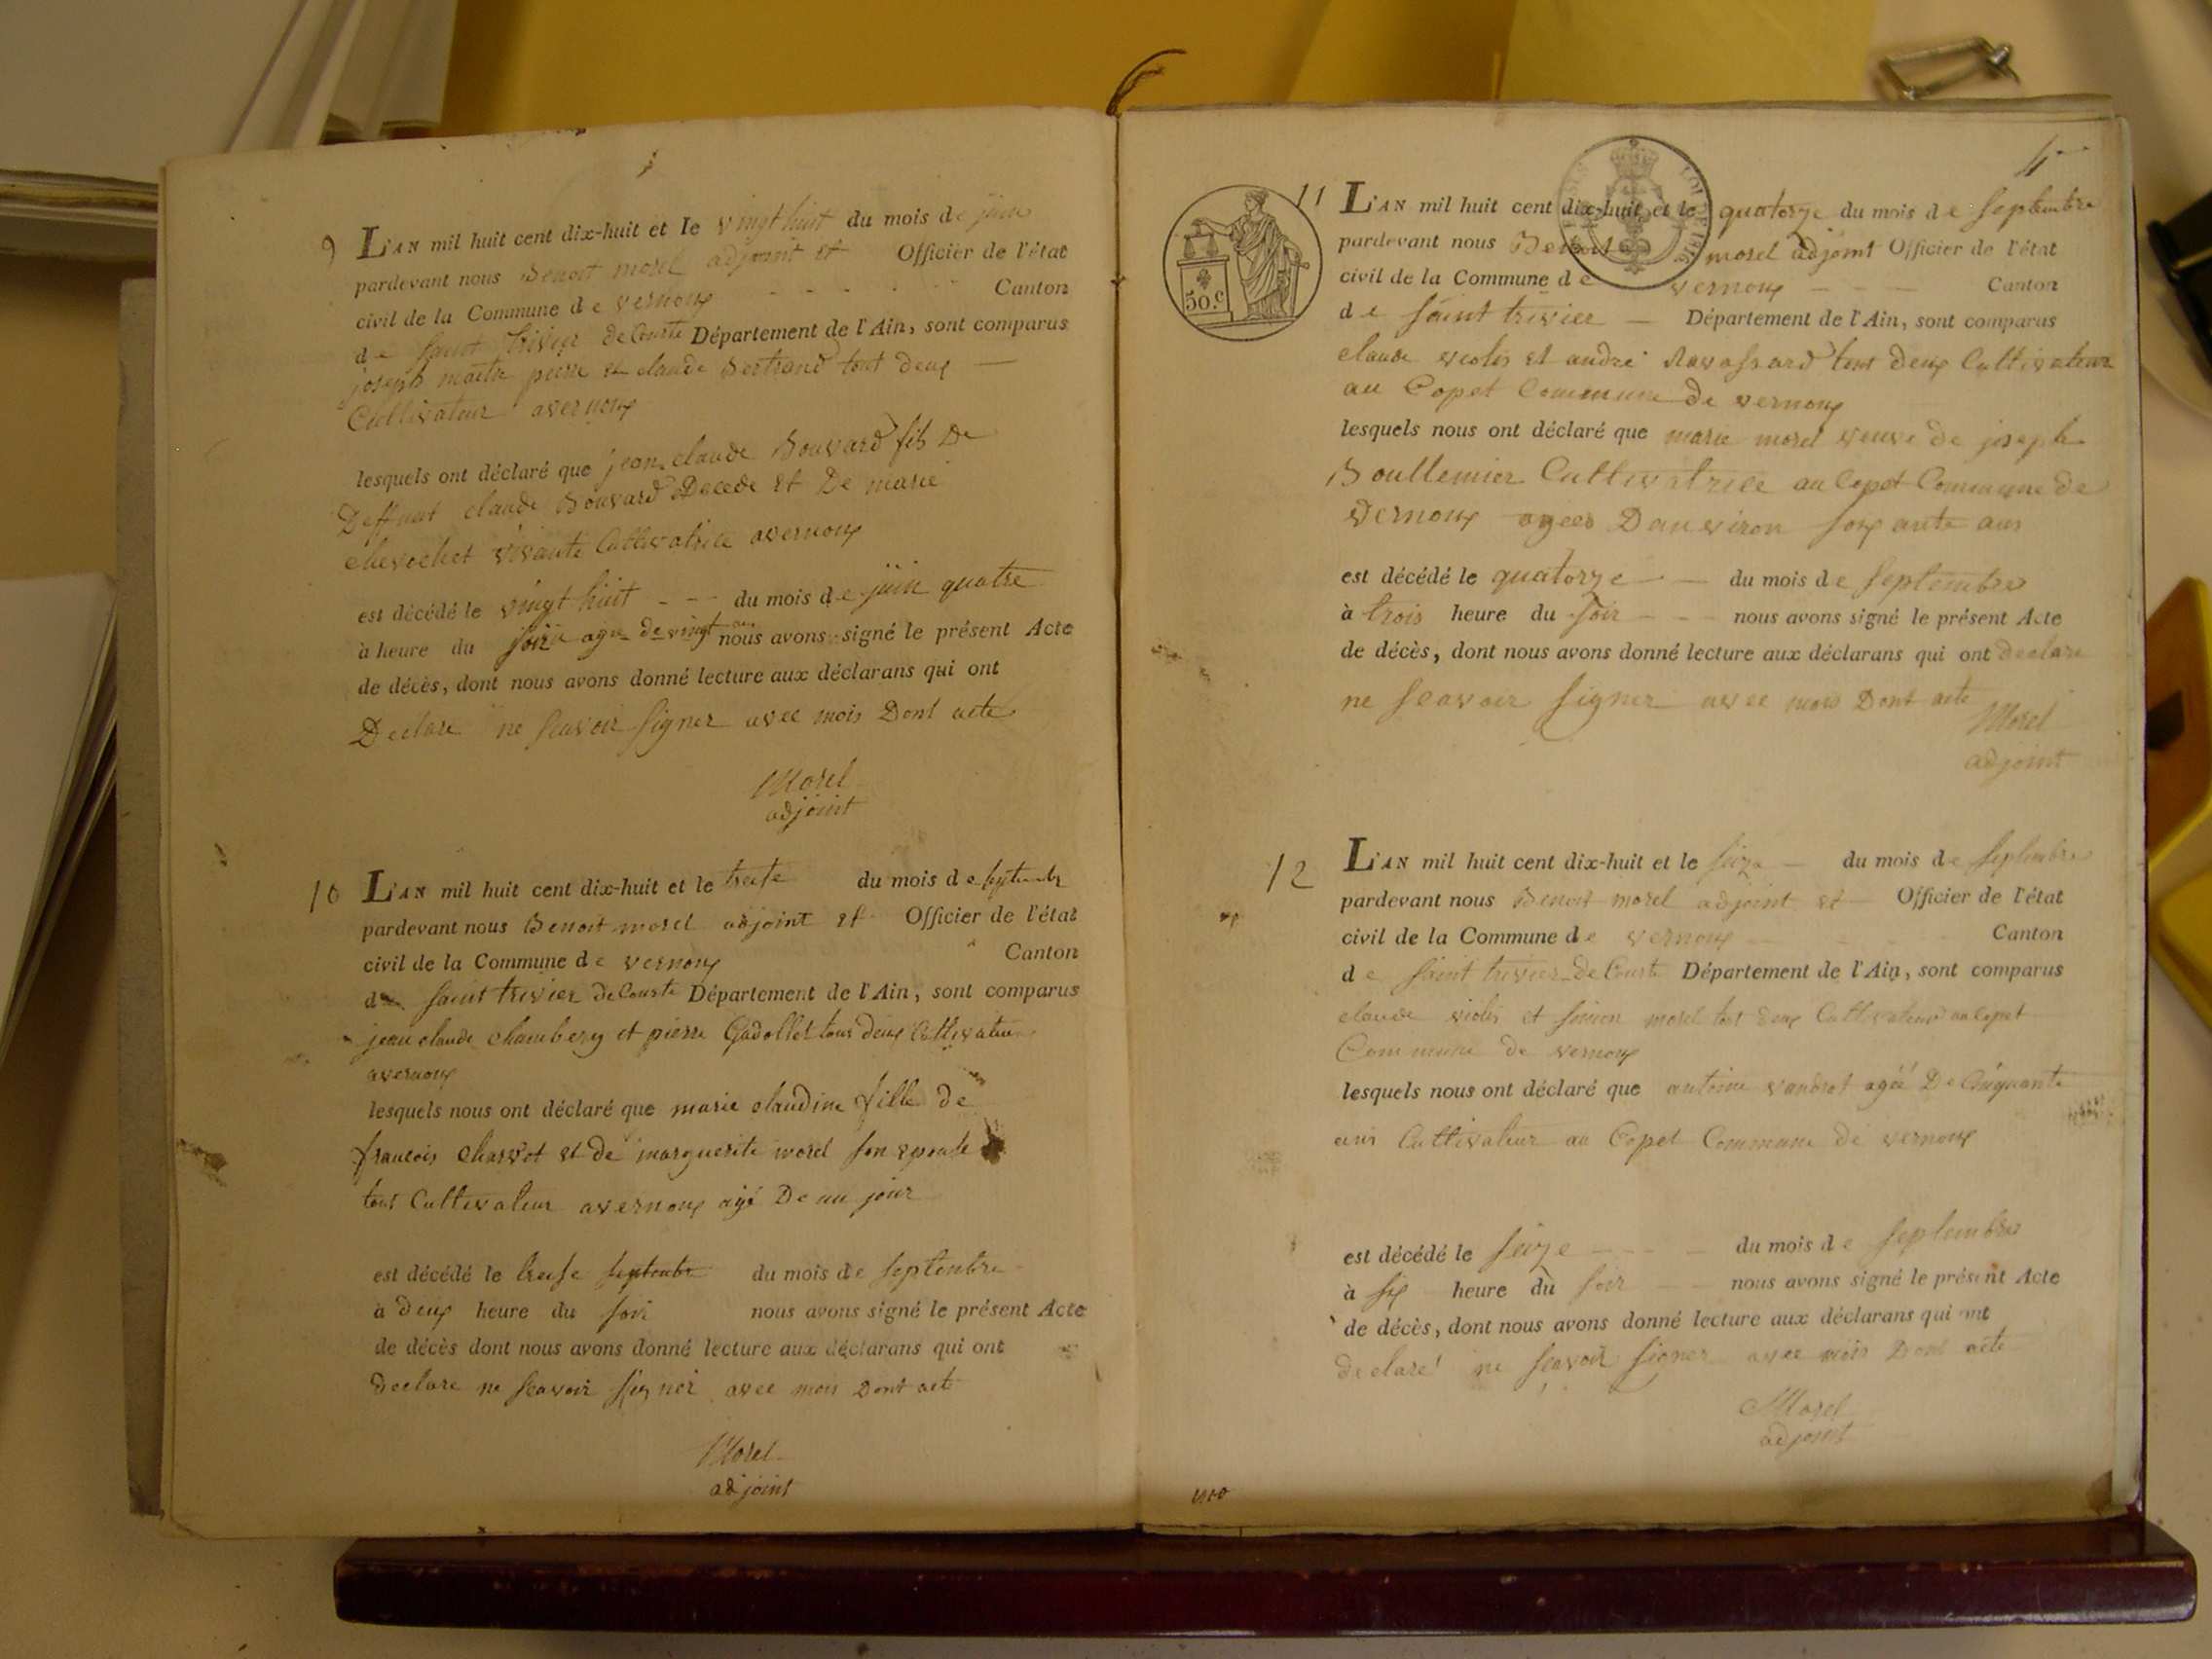 9 L'AN mil huit cent dix-huit et le vingt huit du mois de juin
pardevant nous Benoit morel adjoint et Officier de l'état
civil de la Commune de vernoux Canton
de saint trivier de Courte Département de l'Ain, sont comparus
joseph maitre pierre et claude Bertrand tout deux
Cultivateur avernoux
lesquels ont déclaré que jean claude Bouvard fils De
Deffunt claude Bouvard Decede et De marie
chevochet vivante Cultivatrice avernoux
est décédé le vingt huit du mois de juin quatre
à heure du soir age de vingt ans nous avons signé le présent Acte
de décès, dont nous avons donné lecture aux déclarans qui ont
Declare ne scavoir signer avec mois Dont acte
Morel
adjoint
10 L'AN mil huit cent dix-huit et le treise du mois de septembr
pardevant nous Benoit morel adjoint et Officier de l'état
civil de la Commune de vernoux Canton
de saint trivier de Courte Département de l'Ain, sont comparus
jean claude chambery et pierre Gadollet tous deux Cultivateur
avernoux
lesquels nous ont déclaré que marie claudine fille de
francois charvot et de marguerite morel son epouse
tout Cultivateur avernoux agé De un jour
est décédé le treise septembr du mois de septembre
à deux heure du soir nous avons signé le présent Acte
de décès dont nous avons donné lecture aux déclarans qui ont
declare ne scavoir signer avec mois Dont acte
Morel
adjoint
4
50.c
11 L'AN mil huit cent dix-huit et le quatorze du mois de septembre
pardevant nous Benoit morel adjoint Officier de l'état
civil de la Commune de vernoux Canton
de saint trivier Département de l'Ain, sont comparus
claude violis et andré Ravassard tout deux Cultivateur
au Copet Commune de vernoux
lesquels nous ont déclaré que marie morel veuve de joseph
Boullemier Cultivatrice au Copet Commune de
vernoux agees Danviron soixante ans
est décédé le quatorze du mois de septembre
à trois heure du soir nous avons signé le présent Acte
de décès, dont nous avons donné lecture aux déclarans qui ont declare
ne scavoir signer avec mois Dont acte
Morel
adjoint
12 L'AN mil huit cent dix-huit et le seize du mois de septembre
pardevant nous Benoit morel adjoint et Officier de l'état
civil de la Commune de vernoux Canton
de saint trivier de Courte Département de l'Ain, sont comparus
claude violis et simon morel tout deux Cultivateur au Copet
Commune de vernoux
lesquels nous ont déclaré que antoine vandrot agéé De Cinquante
ans Cultivateur au Copet Commune de vernoux
est décédé le seize du mois de septembre
à six heure du soir nous avons signé le présent Acte
de décès, dont nous avons donné lecture aux déclarans qui ont
declaré ne scavoir signer avec mois Dont acte
Morel
adjoint